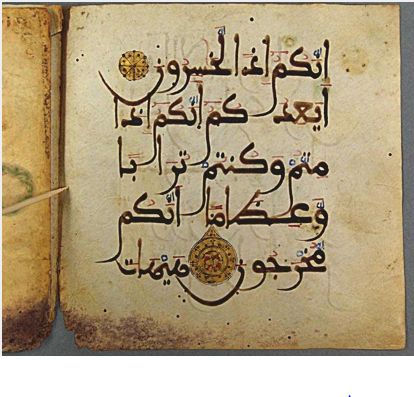 إنّكم إذا لّخسرون
أيعدكم أنّكم إذا
متّم وكنتم ترابا
وعظاما أنّكم
مّخرجون هيهات